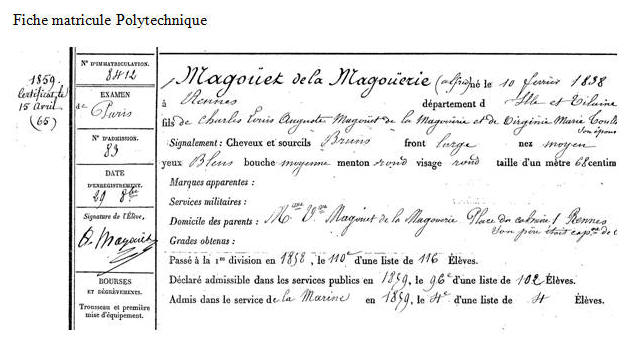 Fiche matricule Polytechnique
1859
Certificat, le
15 Avril
(65)
N° D'IMMATRICULATION.
8412
EXAMEN
de Paris
N° D'ADMISSION.
83
DATE
D'ENREGISTREMENT.
29 8bre
Signature de l'Élève,
BOURSES
ET DÉGRÈVEMENTS.
Trousseau et première
mise d'équipement.
Magoüet de la Magoüerie (Alfred) né le 10 février 1838
à Rennes département d Ille et Vilaine
fils de Charles Louis Auguste Magoüet de la Magouerie et de Virginie Marie
Son épouse
Signalement : Cheveux et sourcils Bruns front large nez moyen
yeux Bleus bouche moyenne menton rond visage rond taille d'un mètre 68 centim
Marques apparentes :
Services militaires :
Domicile des parents : Mme Vve Magoüet de la Magouerie Place du Rennes
Son père était cap.ne de
Grades obtenus :
Passé à la 1re division en 1858, le 110e d'une liste de 116 Élèves.
Déclaré admissible dans les services publics en 1859, le 96e d'une liste de 102 Élèves.
Admis dans le service de la Marine en 1859, le 4e d'une liste de 4 Élèves.